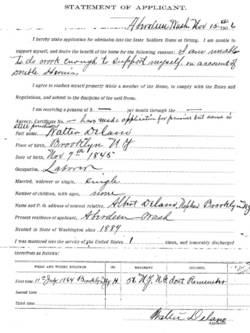 STATEMENT OF APPLICANT.
Aberdeen Wash Nov 10
I hereby make application for admission into the State Soldiers Home at Orting. I am unable to
support myself, and desire the benefit of the home for the following reasons: I am unable
to do work enough to support myself on account of
double Hernia
I agree to conduct myself properly while a member of the Home, to comply with the Rules and
Regulations, and submit to the discipline of the said Home.
I am receiving a pension of $ per month through the
Agency, Certificate No. has made application for pension but
Full name, Walter Delano
Place of birth, Brooklyn N.Y
Date of birth, Nov 7th 1845
Occupation, Laborer
Married, widower or single, single
Number of children, with ages, none
Name and P. O. address of nearest relative, Albert Delano, Brooklyn N.Y
Present residence of applicant, Aberdeen Wash
Located in State of Washington since 1889
I was mustered into the service of the United States 1 times, and honorably discharged
therefrom as follows:
WHEN AND WHERE ENLISTED
First time 11th July 1864 Brooklyn N.Y. 56 N.Y. N.G. dont Remember
Second time
Third time
Walter Delano